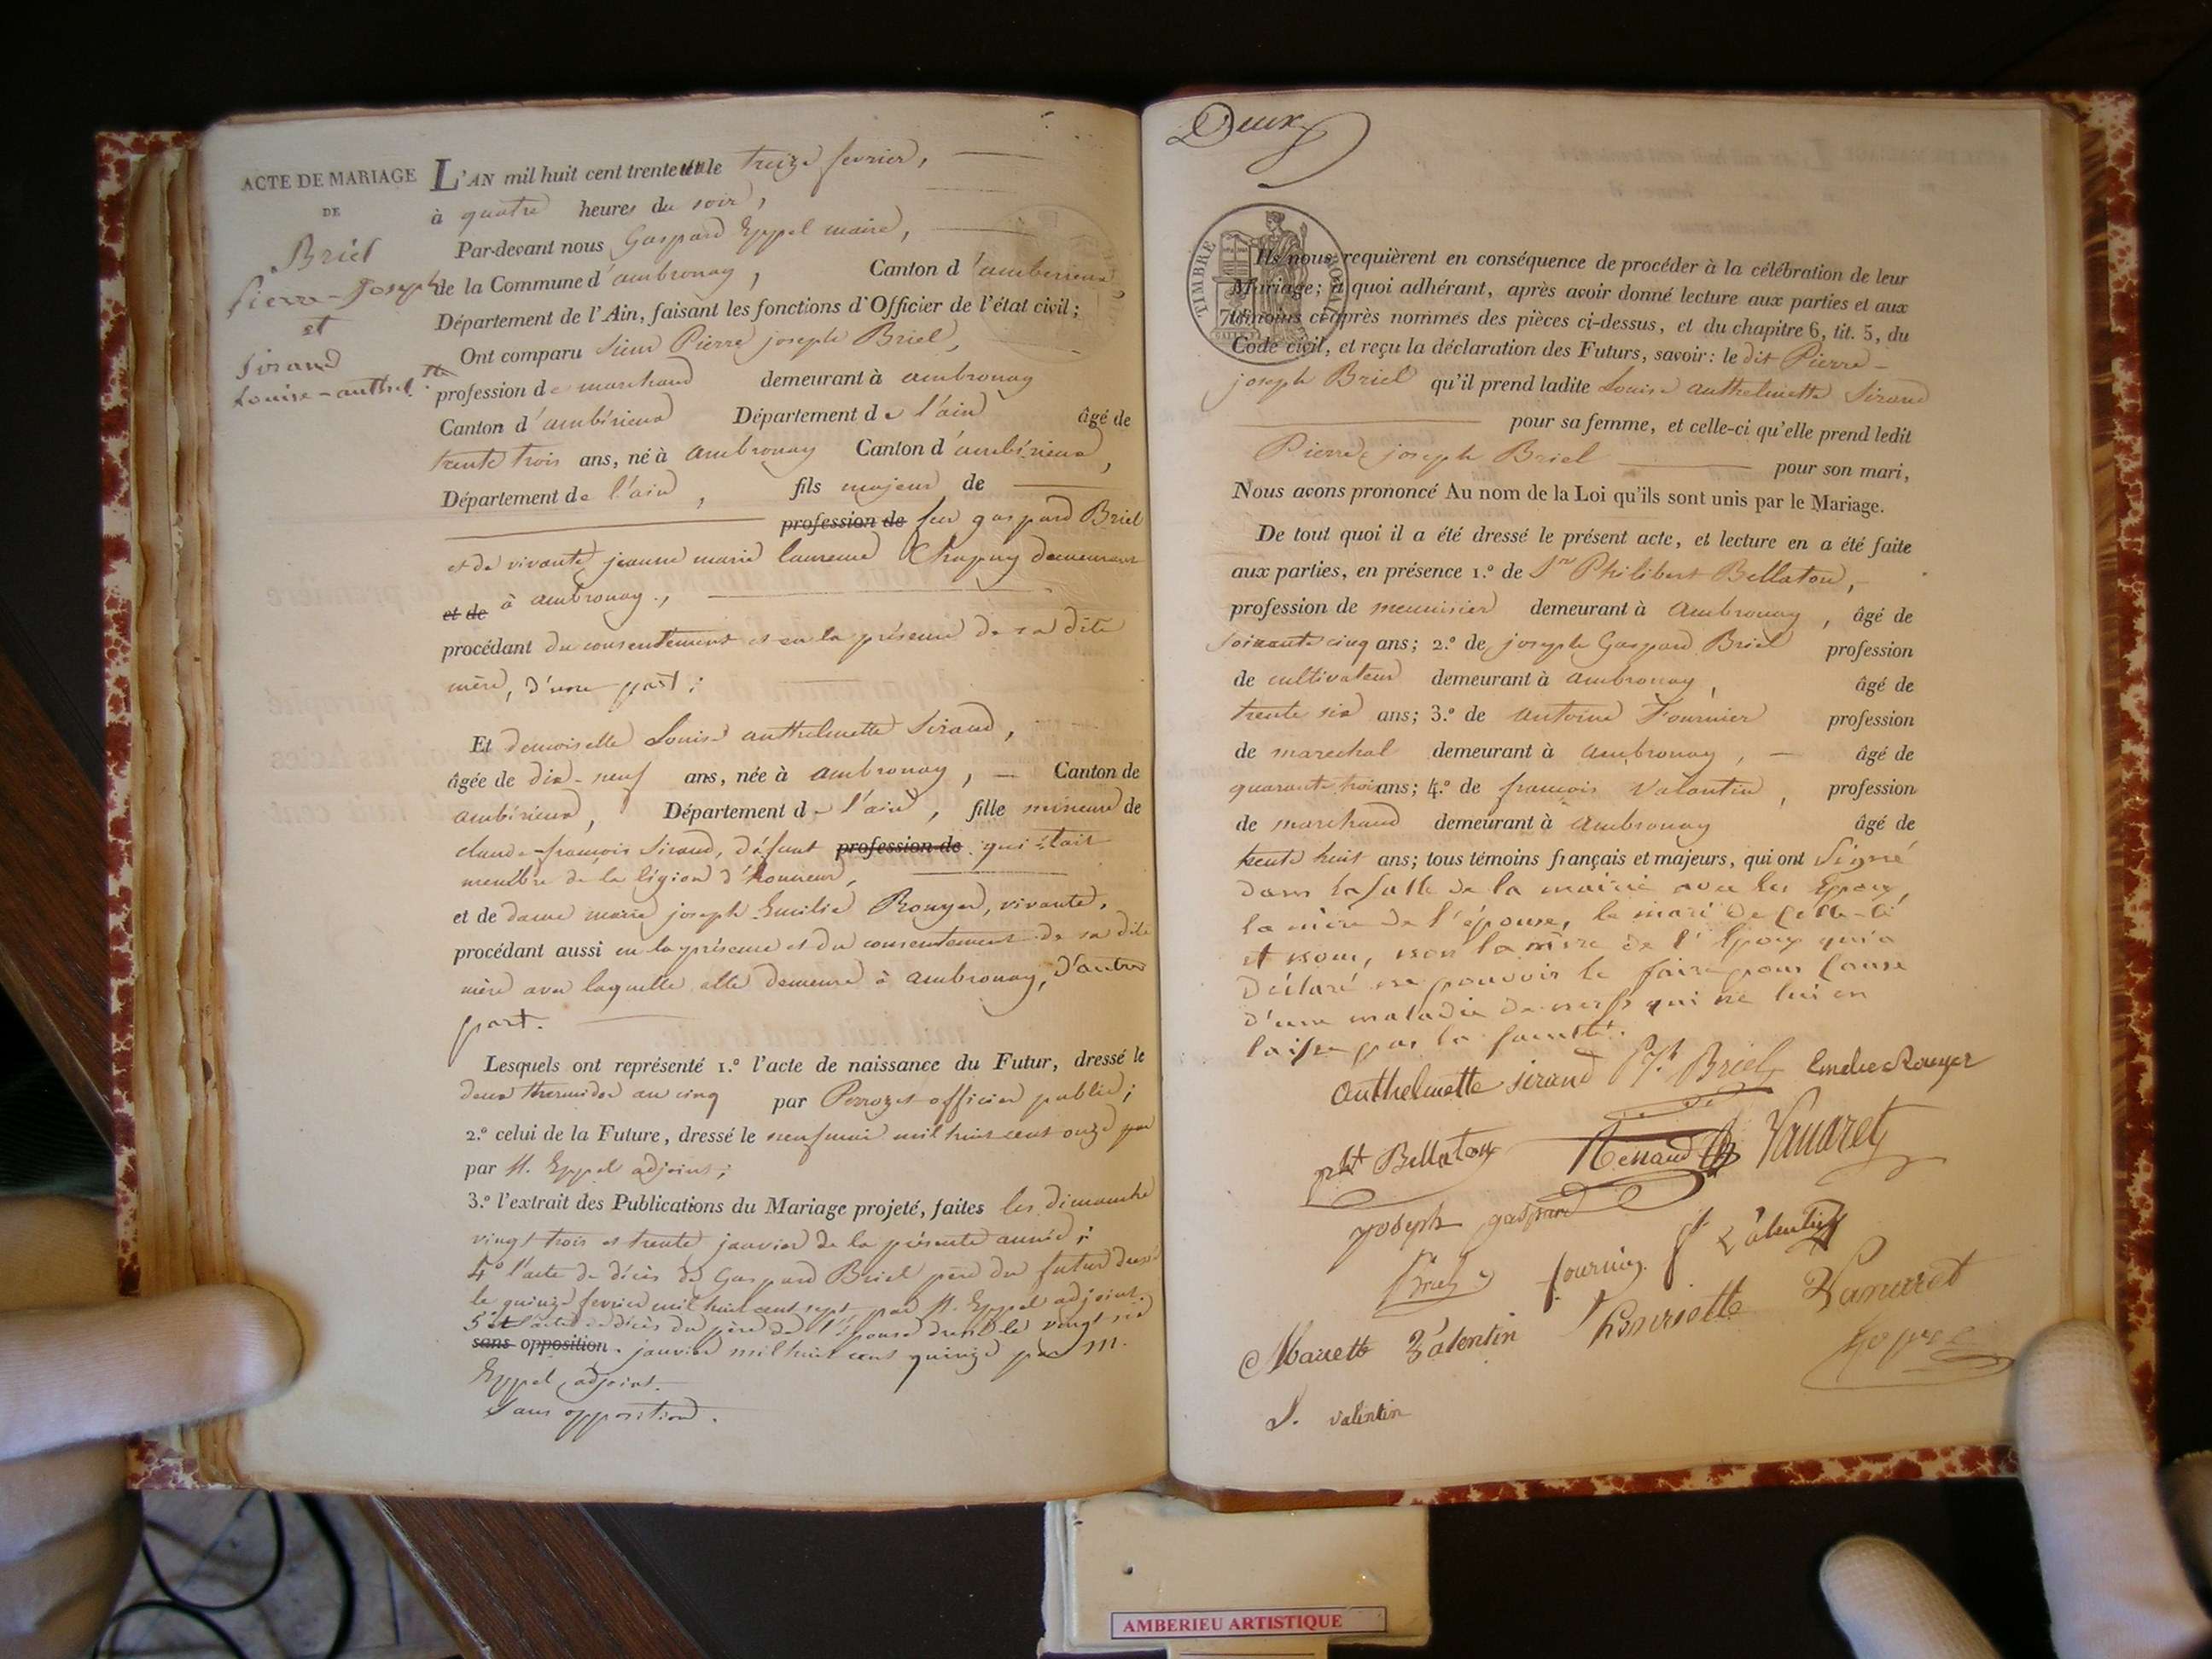 ACTE DE MARIAGE
DE
Briel
Pierre-Joseph
et
Sirand
Louise-anthel.tte
L'AN mil huit cent trente un le treize fevrier,
à quatre heures du soir,
Par-devant nous Gaspard Eppel maire,
de la Commune d'ambronay, Canton d'ambérieux
Département de l'Ain, faisant les fonctions d'Officier de l'état civil;
Ont comparu Sieur Pierre joseph Briel,
profession de marchand demeurant à ambronay
Canton d'ambérieux Département de l'ain âgé de
trente trois ans, né à ambronay Canton d'ambérieux,
Département de l'ain, fils majeur de
profession de feu gaspard Briel
et de vivante jeanne marie laurence Chapuy demeurant
et de à ambronay.,
procédant du consentement et en la présence de sa dite
mère, d'une part;
Et demoiselle Louise anthelmette Sirand,
âgée de dix-neuf ans, née à ambronay, Canton de
ambérieux, Département de l'ain, fille mineure de
claude-françois Sirand, défunt profession de qui était
membre de la légion d'honneur,
et de dame marie joseph Emilie Rouyer, vivante,
procédant aussi en la présence et du consentement de sa dite
mère avec laquelle elle demeure à ambronay, d'autre
part.
Lesquels ont représenté 1.º l'acte de naissance du Futur, dressé le
deux thermidor an cinq par Perrozet officier public;
2.º celui de la Future, dressé le neuf mai mil huit cent onze par
par M. Eppel adjoint;
3.º l'extrait des Publications du Mariage projeté, faites les dimanche
vingt trois et trente janvier de la présente année;
4º l'acte de décès de Gaspard Briel père du futur dressé
le quinze fevrier mil huit cent sept par M. Eppel adjoint.
5º et l'acte de décès du père de l'épouse dressé le vingt six
sans opposition. janvier mil huit cent quinze par M.
Eppel adjoint.
Sans opposition.
Deux
TIMBRE ROYAL
Ils nous requièrent en conséquence de procéder à la célébration de leur
Mariage; à quoi adhérant, après avoir donné lecture aux parties et aux
témoins ci-après nommés des pièces ci-dessus, et du chapitre 6, tit. 5, du
Code civil, et reçu la déclaration des Futurs, savoir: le dit Pierre-
joseph Briel qu'il prend ladite Louise anthelmette Sirand
pour sa femme, et celle-ci qu'elle prend ledit
Pierre joseph Briel pour son mari,
Nous avons prononcé Au nom de la Loi qu'ils sont unis par le Mariage.
De tout quoi il a été dressé le présent acte, et lecture en a été faite
aux parties, en présence 1.º de Sr Philibert Bellaton,
profession de menuisier demeurant à ambronay, âgé de
soixante cinq ans; 2.º de joseph Gaspard Briel profession
de cultivateur demeurant à ambronay, âgé de
trente six ans; 3.º de antoine Fournier profession
de marechal demeurant à ambronay, âgé de
quarante trois ans; 4.º de françois Valentin, profession
de marchand demeurant à ambronay âgé de
trente huit ans; tous témoins français et majeurs, qui ont Signé
dans la salle de la mairie avec les Epoux,
la mère de l'épouse, le mari de celle-ci
et nous, non la mère de l'Epoux qui a
déclaré ne pouvoir le faire pour cause
d'une maladie de nerfs qui ne lui en
laisse pas la faculté.
anthelmette sirand P. Jh Briel Emelie Rouyer
pht Bellaton Renaud Vanaret
joseph gaspard
Briel fournier f Valentin
Mariette Valentin henriette Vanaret
Eppel
S. valentin
AMBERIEU ARTISTIQUE